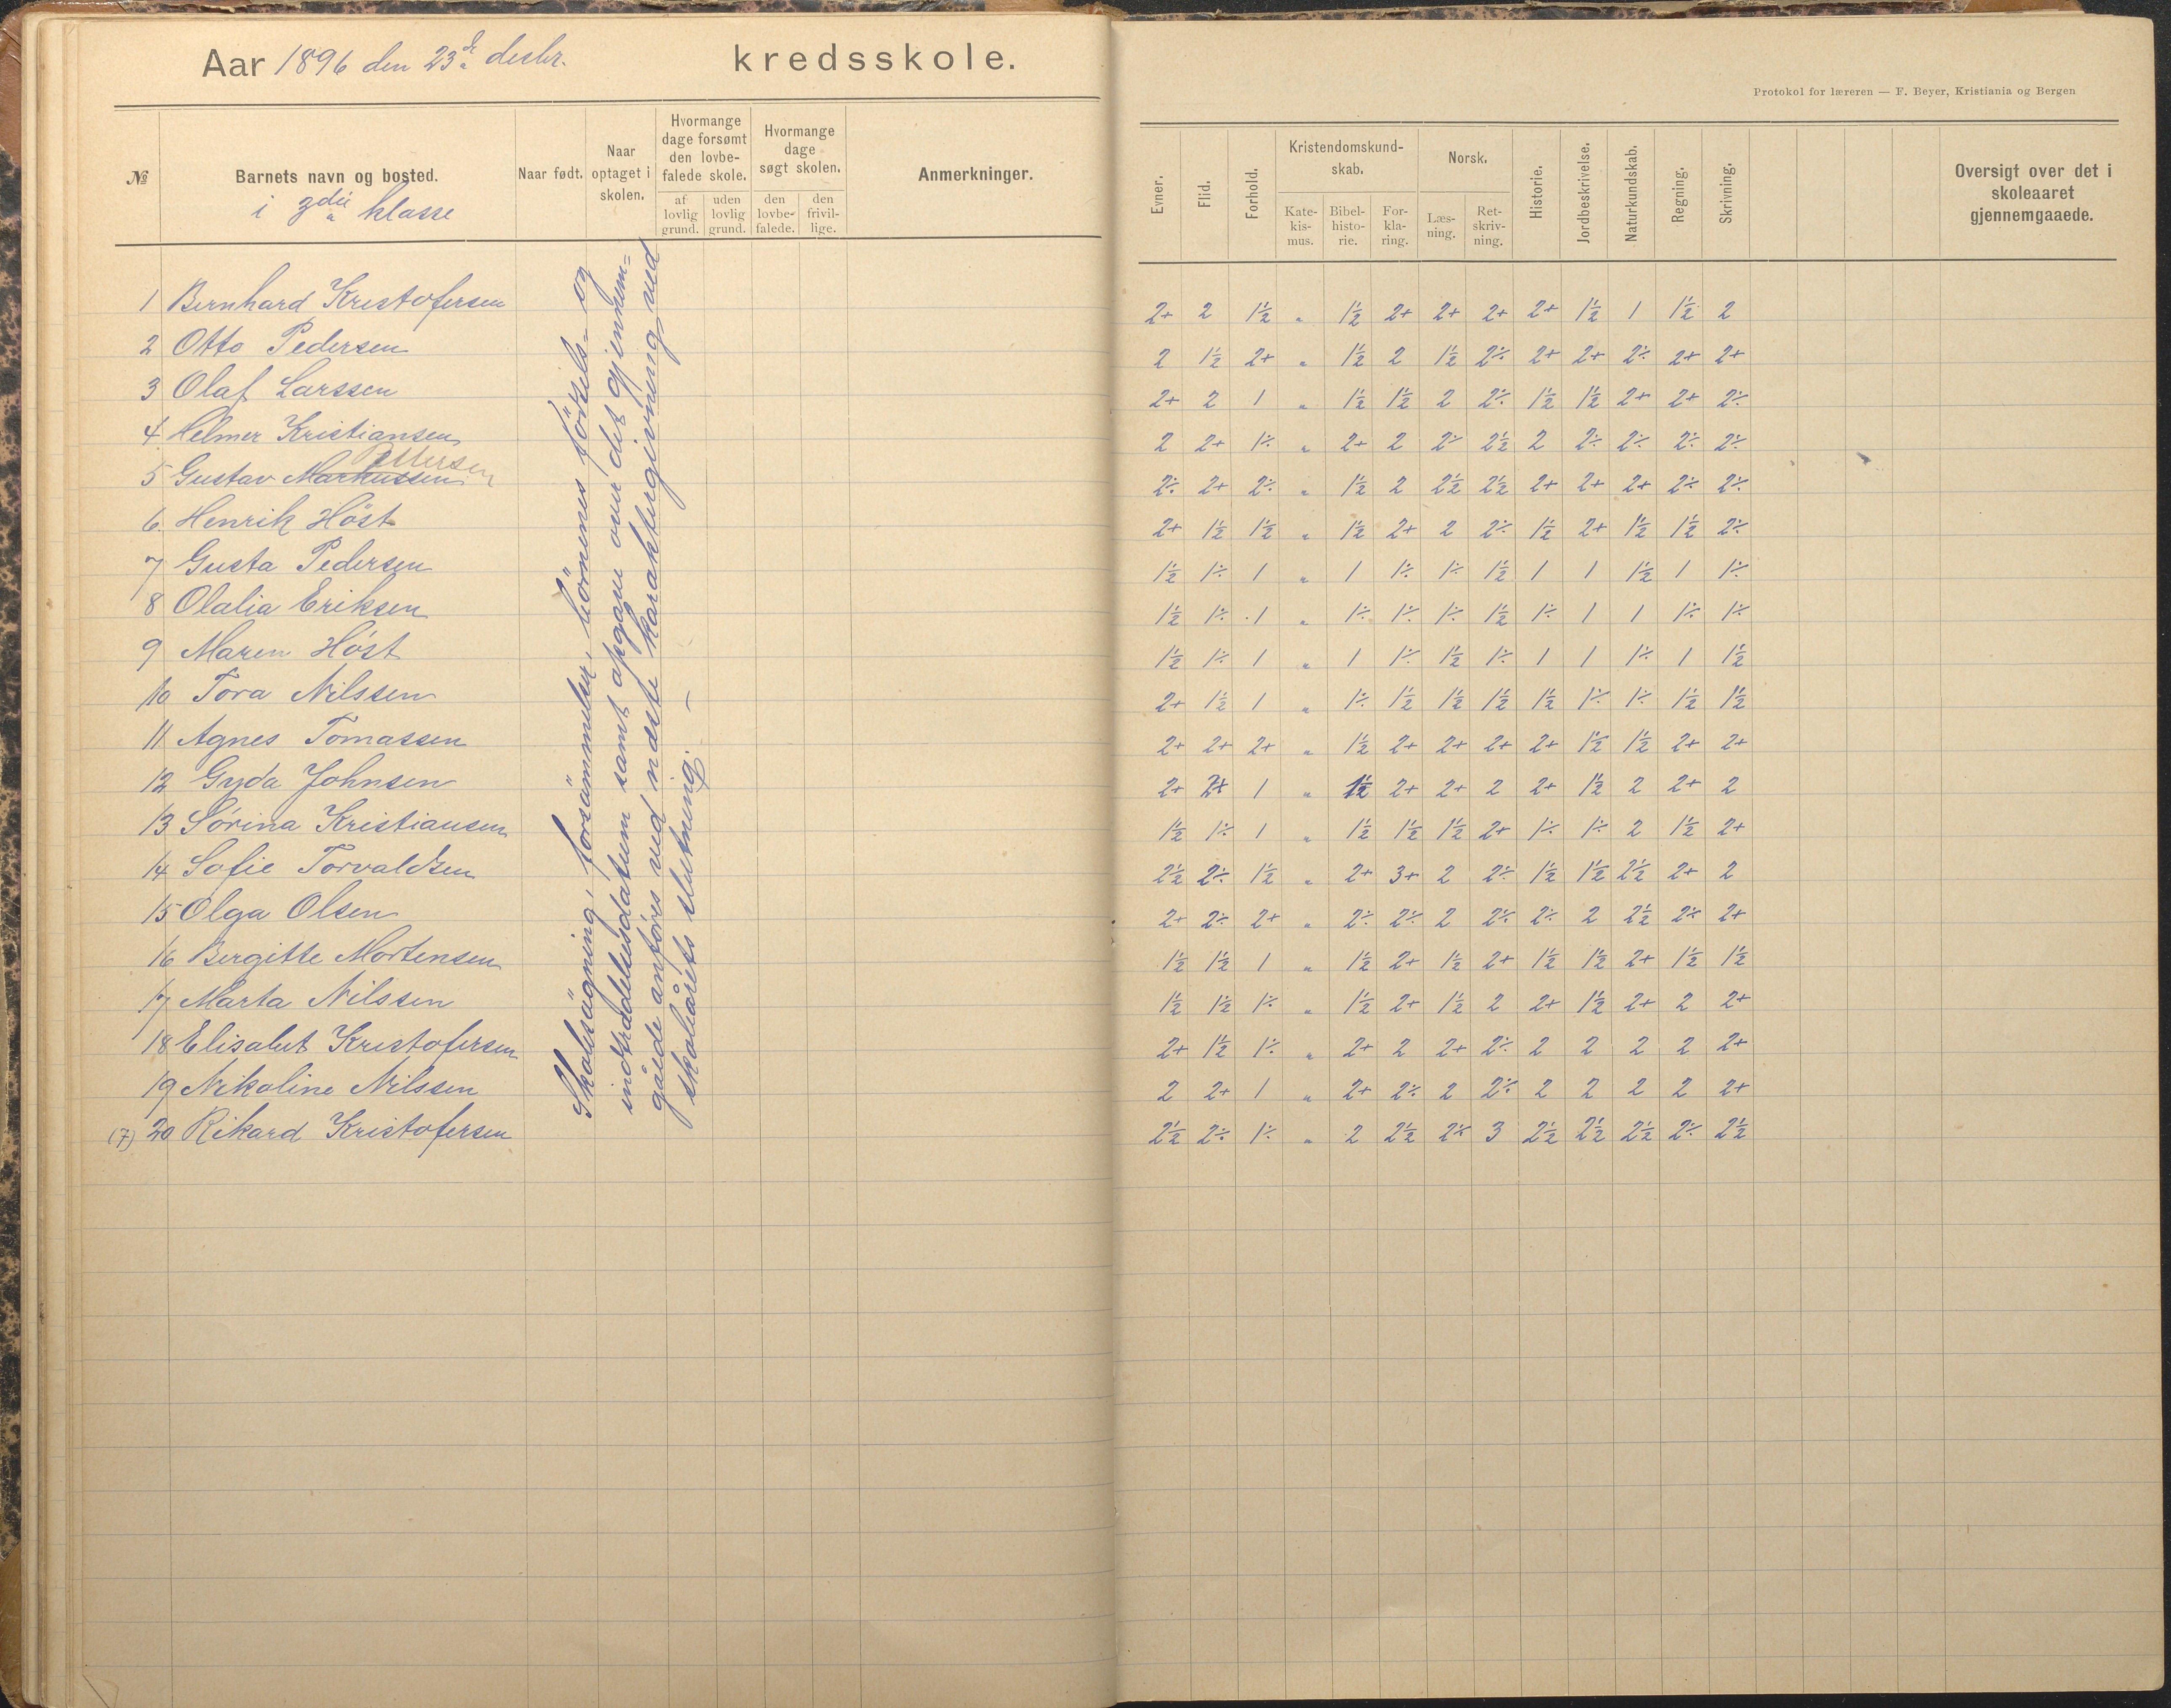 Aar 1896 den 23de desbr. kredsskole.
Protokol for læreren — F. Beyer, Kristiania og Bergen
№
Barnets navn og bosted.
i 3die klasse
Naar født.
Naar
optaget i
skolen.
Hvormange
dage forsømt
den lovbe-
falede skole.
af
lovlig
grund.
uden
lovlig
grund.
Hvormange
dage
søgt skolen.
den
lovbe-
falede.
den
frivil-
lige.
Anmerkninger.
Evner.
Flid.
Forhold.
Kristendomskund-
skab.
Kate-
kis-
mus.
Bibel-
histo-
rie.
For-
kla-
ring.
Norsk.
Læs-
ning.
Ret-
skriv-
ning.
Historie.
Jordbeskrivelse.
Naturkundskab.
Regning.
Skrivning.
Oversigt over det i
skoleaaret
gjennemgaaede.
1 Bernhard Kristofersen 2+ 2 1½ " 1½ 2+ 2+ 2+ 2+ 1½ 1 1½ 2
2 Otto Pedersen 2 1½ 2+ " 1½ 2 1½ 2÷ 2+ 2+ 2÷ 2+ 2+
3 Olaf Larssen 2+ 2 1 " 1½ 1½ 2 2÷ 1½ 1½ 2+ 2+ 2÷
4 Helmer Kristiansen 2 2+ 1÷ " 2+ 2 2÷ 2½ 2 2÷ 2÷ 2÷ 2÷
5 Gustav Markussen Pettersen 2÷ 2+ 2÷ " 1½ 2 2½ 2½ 2+ 2+ 2+ 2÷ 2÷
6. Henrik Höst 2+ 1½ 1½ " 1½ 2+ 2 2÷ 1½ 2+ 1½ 1½ 2÷
7 Gusta Pedersen 1½ 1÷ 1 " 1 1÷ 1÷ 1½ 1 1 1½ 1 1÷
8 Olalia Eriksen 1½ 1÷ 1 " 1÷ 1÷ 1÷ 1½ 1÷ 1 1 1÷ 1÷
9 Maren Höst 1½ 1÷ 1 " 1 1÷ 1½ 1÷ 1 1 1÷ 1 1½
10 Tora Nilssen 2+ 1½ 1 " 1÷ 1½ 1½ 1½ 1½ 1÷ 1÷ 1½ 1½
11 Agnes Tomassen 2+ 2+ 2+ " 1½ 2+ 2+ 2+ 2+ 1½ 1½ 2+ 2+
12 Gyda Johnsen 2+ 2+ 1 " 1½ 2+ 2+ 2 2+ 1½ 2 2+ 2
13 Sörina Kristiansen 1½ 1÷ 1 " 1½ 1½ 1½ 2+ 1÷ 1÷ 2 1½ 2+
14 Sofie Torvaldsen 2½ 2÷ 1½ " 2+ 3+ 2 2÷ 1½ 1½ 2½ 2+ 2
15 Olga Olsen 2+ 2÷ 2+ " 2÷ 2÷ 2 2÷ 2÷ 2 2½ 2÷ 2+
16 Bergitte Mortensen 1½ 1½ 1 " 1½ 2+ 1½ 2+ 1½ 1½ 2+ 1½ 1½
17 Marta Nilssen 1½ 1½ 1÷ " 1½ 2+ 1½ 2 2+ 1½ 2+ 2 2+
18 Elisabet Kristofersen 2+ 1½ 1÷ " 2+ 2 2+ 2÷ 2 2 2 2 2+
19 Nikoline Nilssen 2 2+ 1 " 2+ 2÷ 2 2÷ 2 2 2 2 2+
(7) 20 Rikard Kristofersen 2½ 2÷ 1÷ " 2 2½ 2÷ 3 2½ 2½ 2½ 2÷ 2½
Skolesögning, forsömmelser, börnenes födsels- og
indtrædelsesdatum samt opgave over det gjennem-
gåede anföres ved næste karaktergivning ved
skoleårets slutning. —